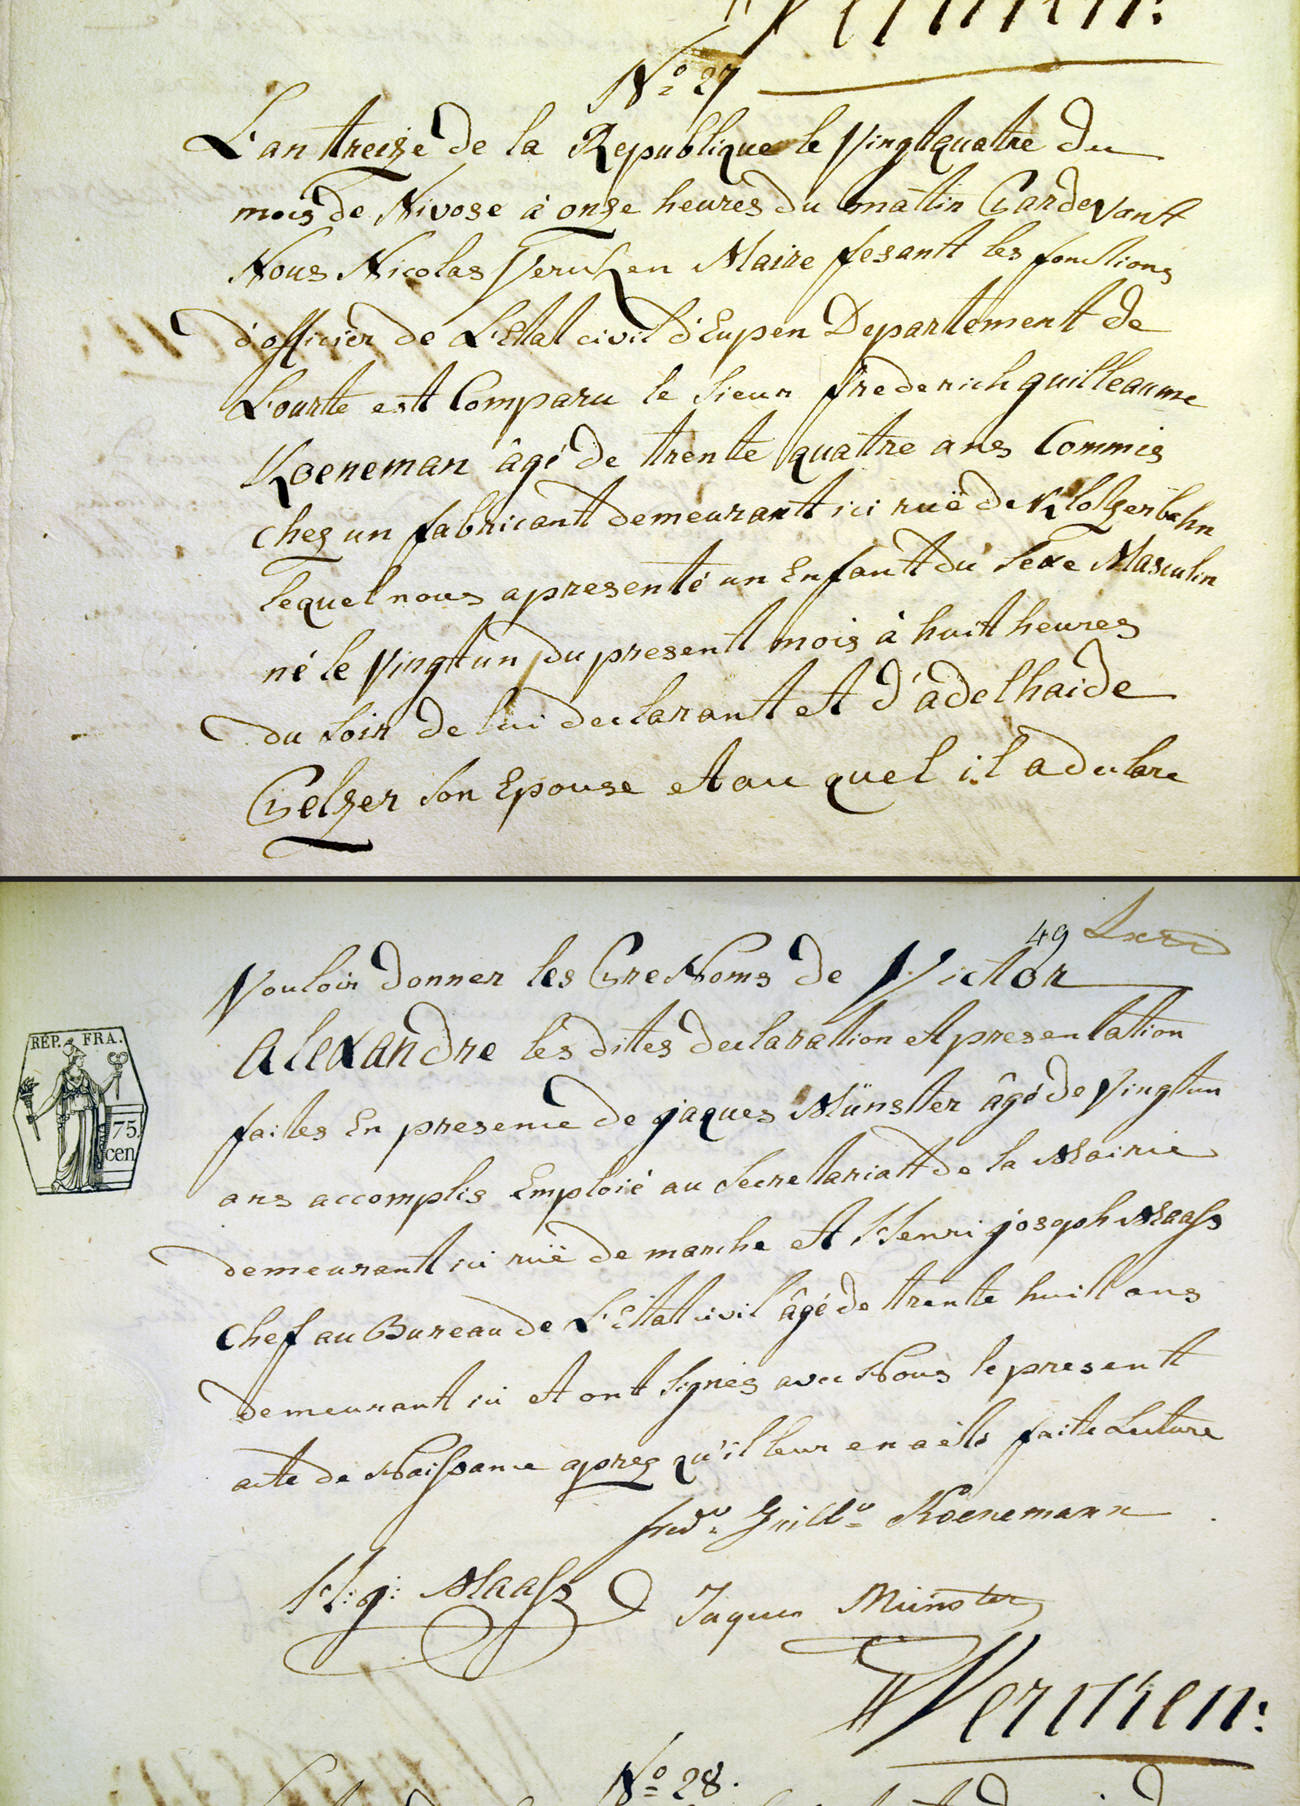 Vercken:
Nº 27
L'an treize de la Republique le Vingtquatre du
mois de Nivose à onze heures du matin Pardevant
Nous Nicolas Vercken Maire fesant les fonctions
d'officier de L'Etat civil d'Eupen Departement de
L'ourte est Comparu le Sieur frederich guilleaume
Koeneman âgé de trente quatre ans Commis
chez un fabricant demeurant ici ruë de Klotzerbahn
lequel nous apresenté un Enfant du Sexe Masculin
né le Vingtun du present mois à huit heures
du Soir de lui declarant et d'adelhaide
Gelzer Son Epouse et au quel il a declare
49
Vouloir donner les PreNoms de Victor
Alexandre les dites declaration et presentation
faites En presence de jaques Münster âgé de Vingtun
ans accomplis Emploié au Secretariat de la Mairie
demeurant ici ruë de marche et Henri joseph Maass
chef au Bureau de L'Etat civil âgé de trente huit ans
demeurant ici et ont signés avec Nous le present
acte de Naissance aprez qu'il leur en a été faite Lecture
REP. FRA.
75.
cen
fredr. Guillr. Koenemann
H: j: Maass
Jaques Münster
Vercken:
Nº 28.